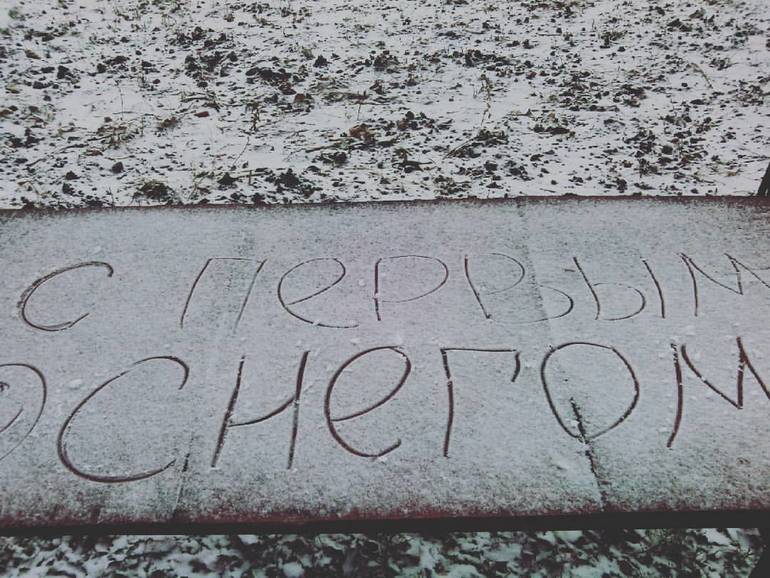 с первым
снегом